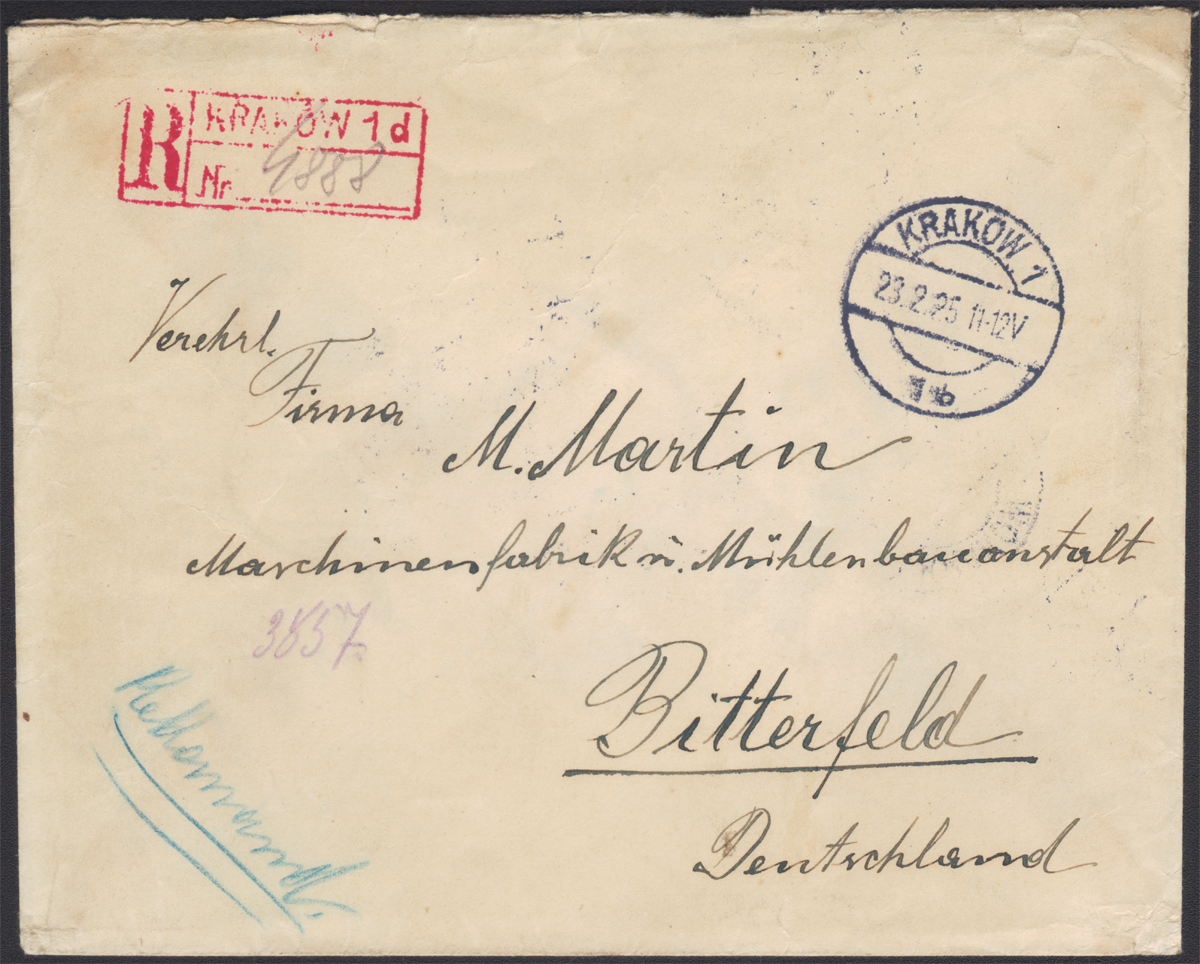 R KRAKÓW 1 d
Nr. 4888
KRAKÓW 1
23.2.25 11-12V
1b
Verehrl.
Firma
M. Martin
Maschinenfabrik u. Mühlenbauanstalt
3857
Bitterfeld
Deutschland